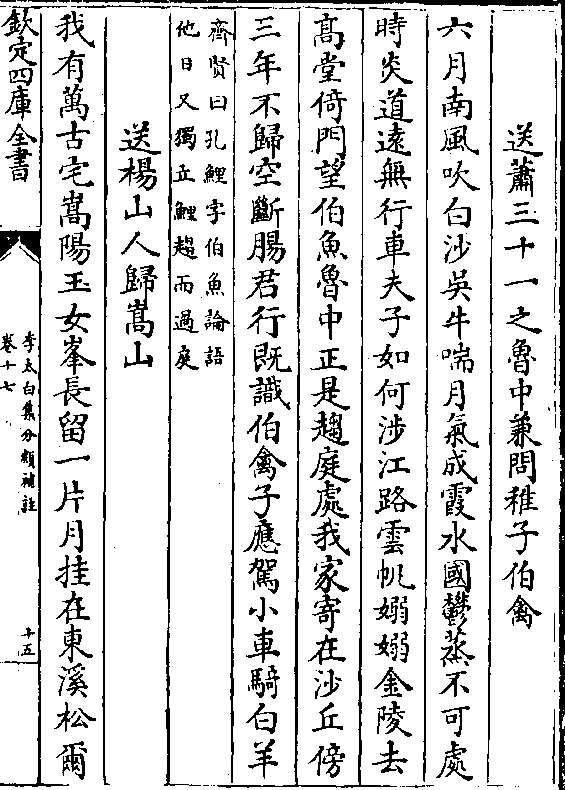 送蕭三十一之魯中兼問稚子伯禽
六月南風吹白沙吳牛喘月氣成霞水國鬱蒸不可處
時炎道遠無行車夫子如何涉江路雲帆嫋嫋金陵去
高堂倚門望伯魚魯中正是趨庭處我家寄在沙丘傍
三年不歸空斷腸君行既識伯禽子應駕小車騎白羊
齊賢曰孔鯉字伯魚論語
他日又獨立鯉趨而過庭
送楊山人歸嵩山
我有萬古宅嵩陽玉女峯長留一片月挂在東溪松爾
欽定四庫全書
李太白集分類補註
卷十七
十五